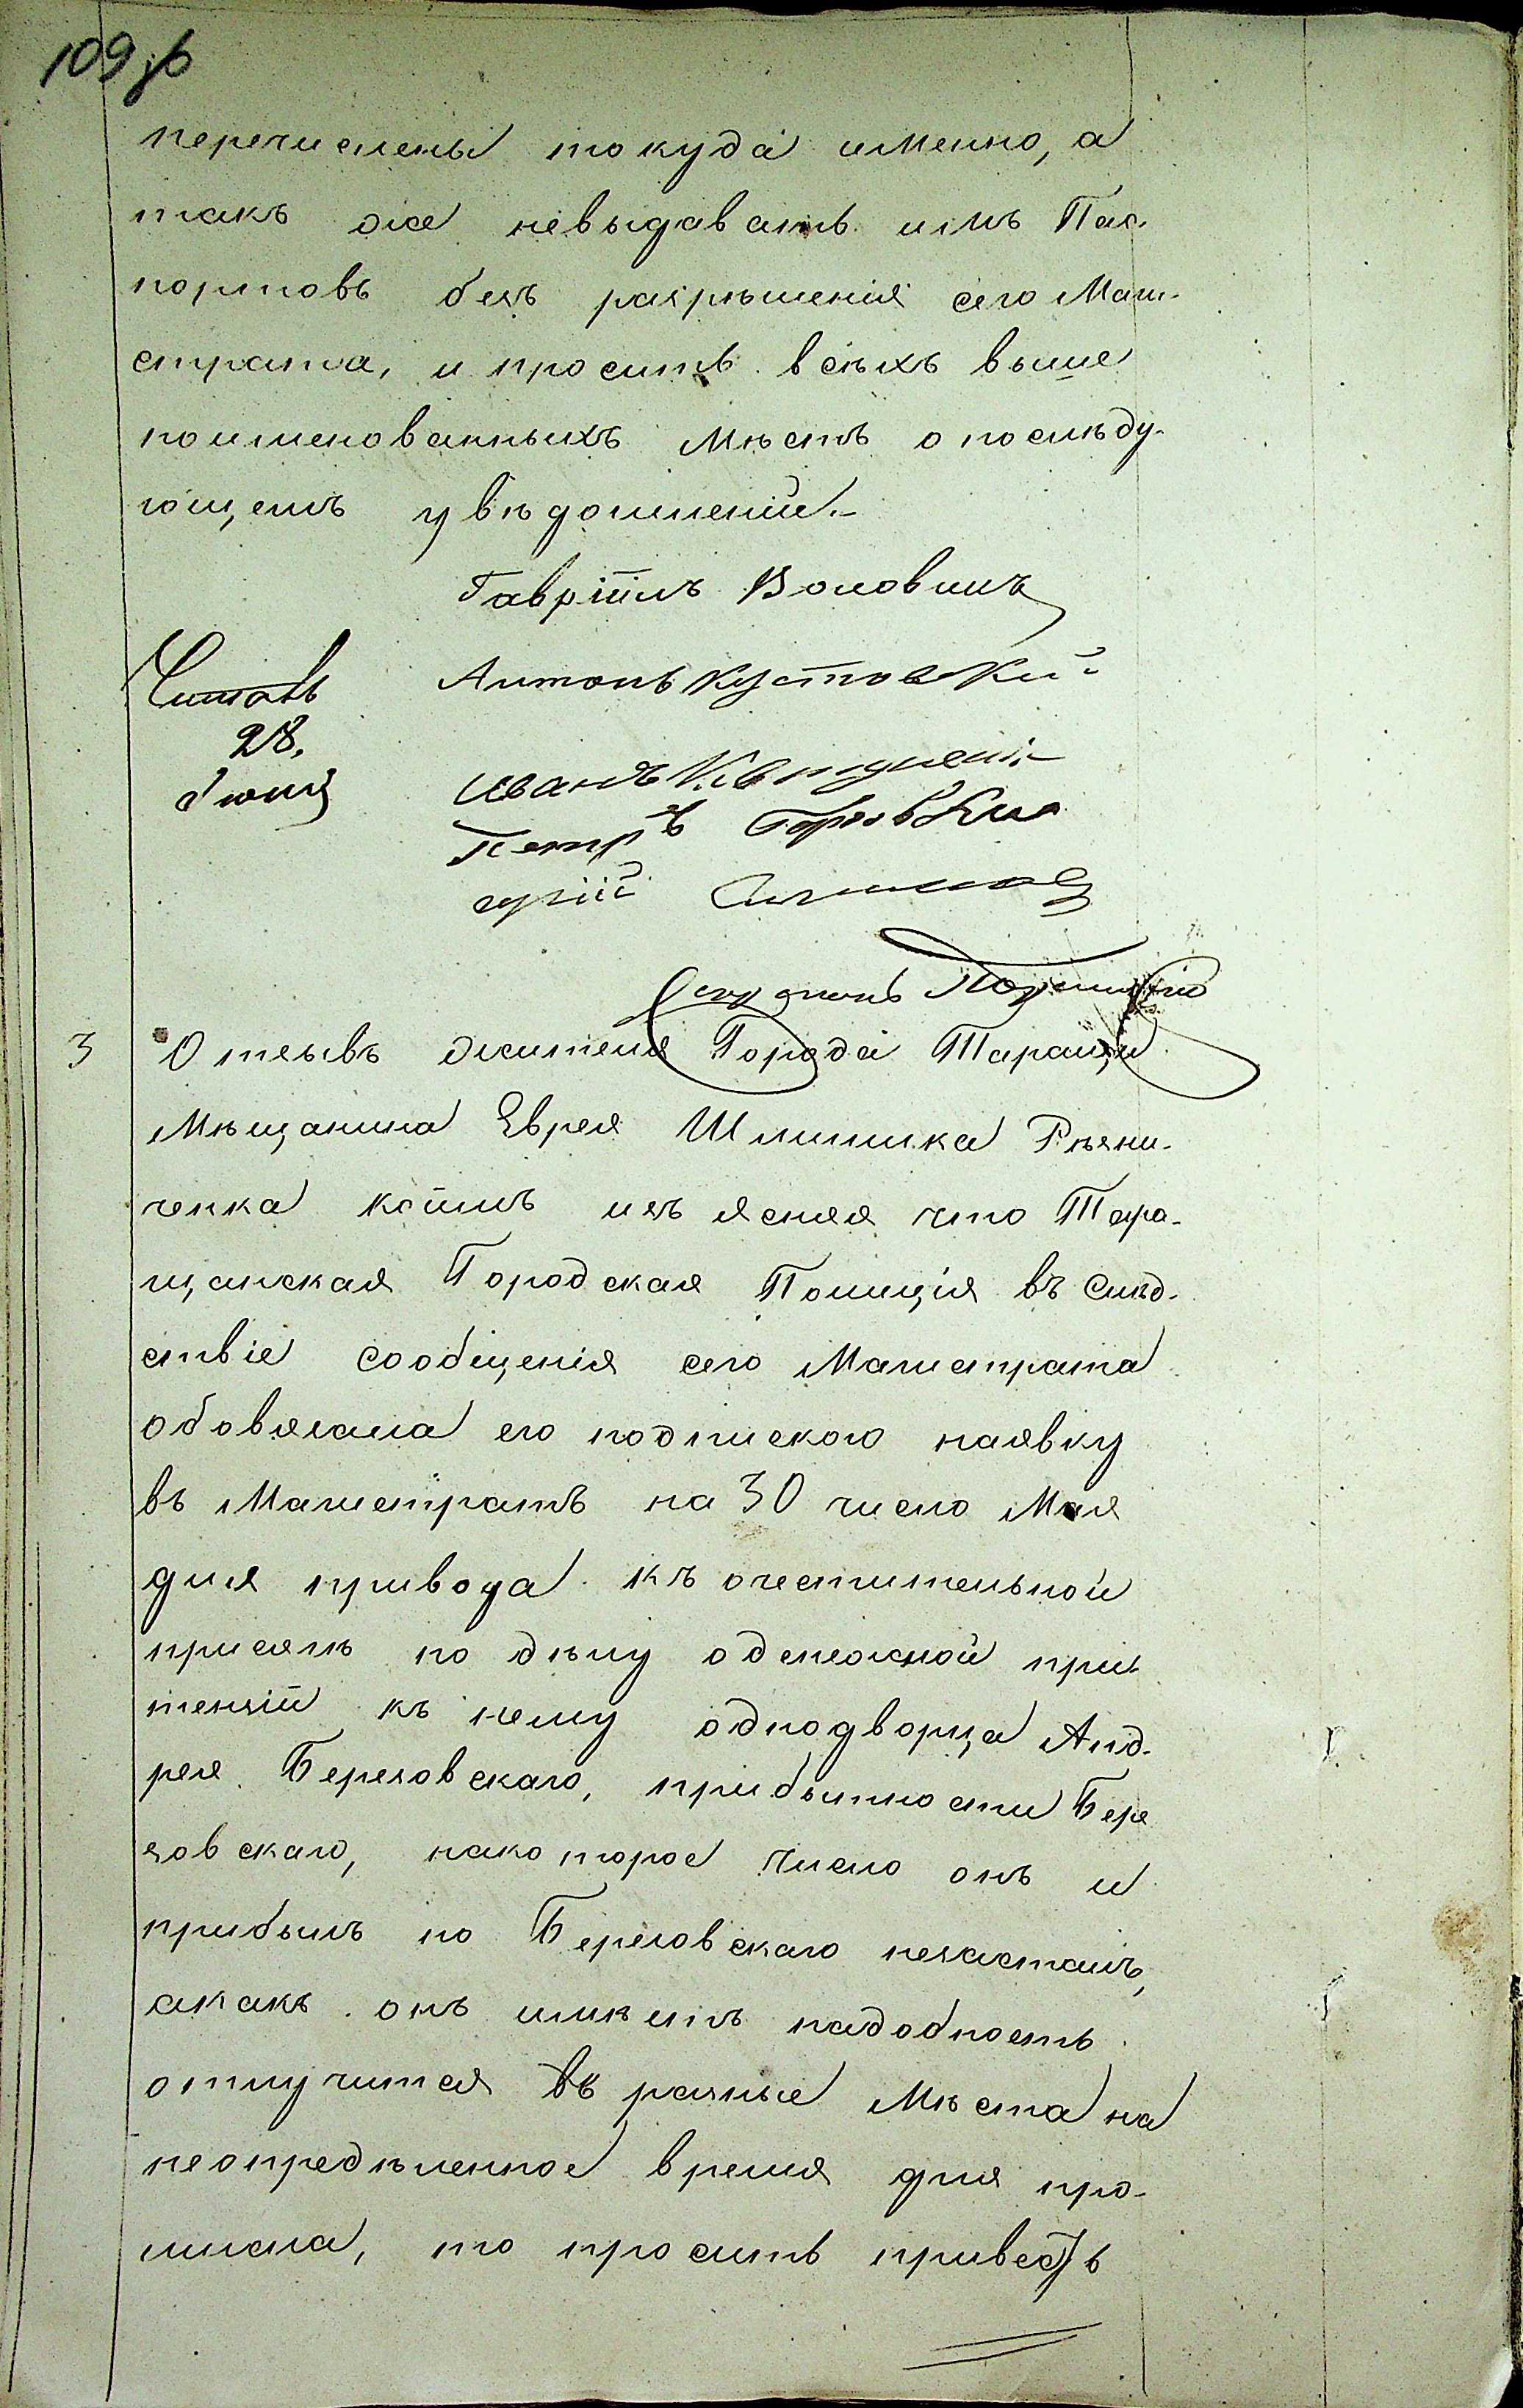 109 зв
перечислены токуда именно, а
такъ же невыдавать имъ Пас-
портовъ безъ разрѣшенія сего Маги-
страта, и просить всѣхъ выше
поименованныхъ Мѣстъ о послѣду-
ющемъ увѣдомленіи.-
Гавріилъ Воловикъ
Читалъ
28.
Іюня
Антонъ Кустовскій
Иванъ
Петръ
3 Отзывъ жителя Города Таращи
Мѣщанина Еврея Шлиомка Рѣзни-
ченка коимъ изъясняя что Тара-
щанская Городская Полиція въ Слѣд-
ствіе сообщенія сего Магистрата
обовязала его подпискою наявку
въ Магистратъ на 30 число Мая
для привода къ очестительной
присягѣ по дѣлу оденежной при-
тензіи къ нему однодворца Анд-
рея Березовскаго, прибытности Бере
зовскаго, накоторое число онъ и
прибылъ но Березовскаго незасталъ,
акакъ онъ имѣетъ надобность
отлучится въ разные Мѣста на
неопредѣленное время для про-
мысла, то проситъ привесть